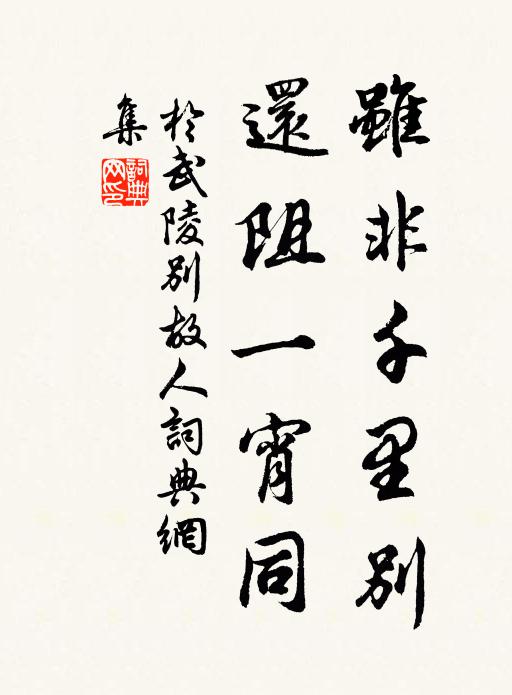 雖非千里別
還阻一宵同
於武陵別故人詞典網
集
詞典網印